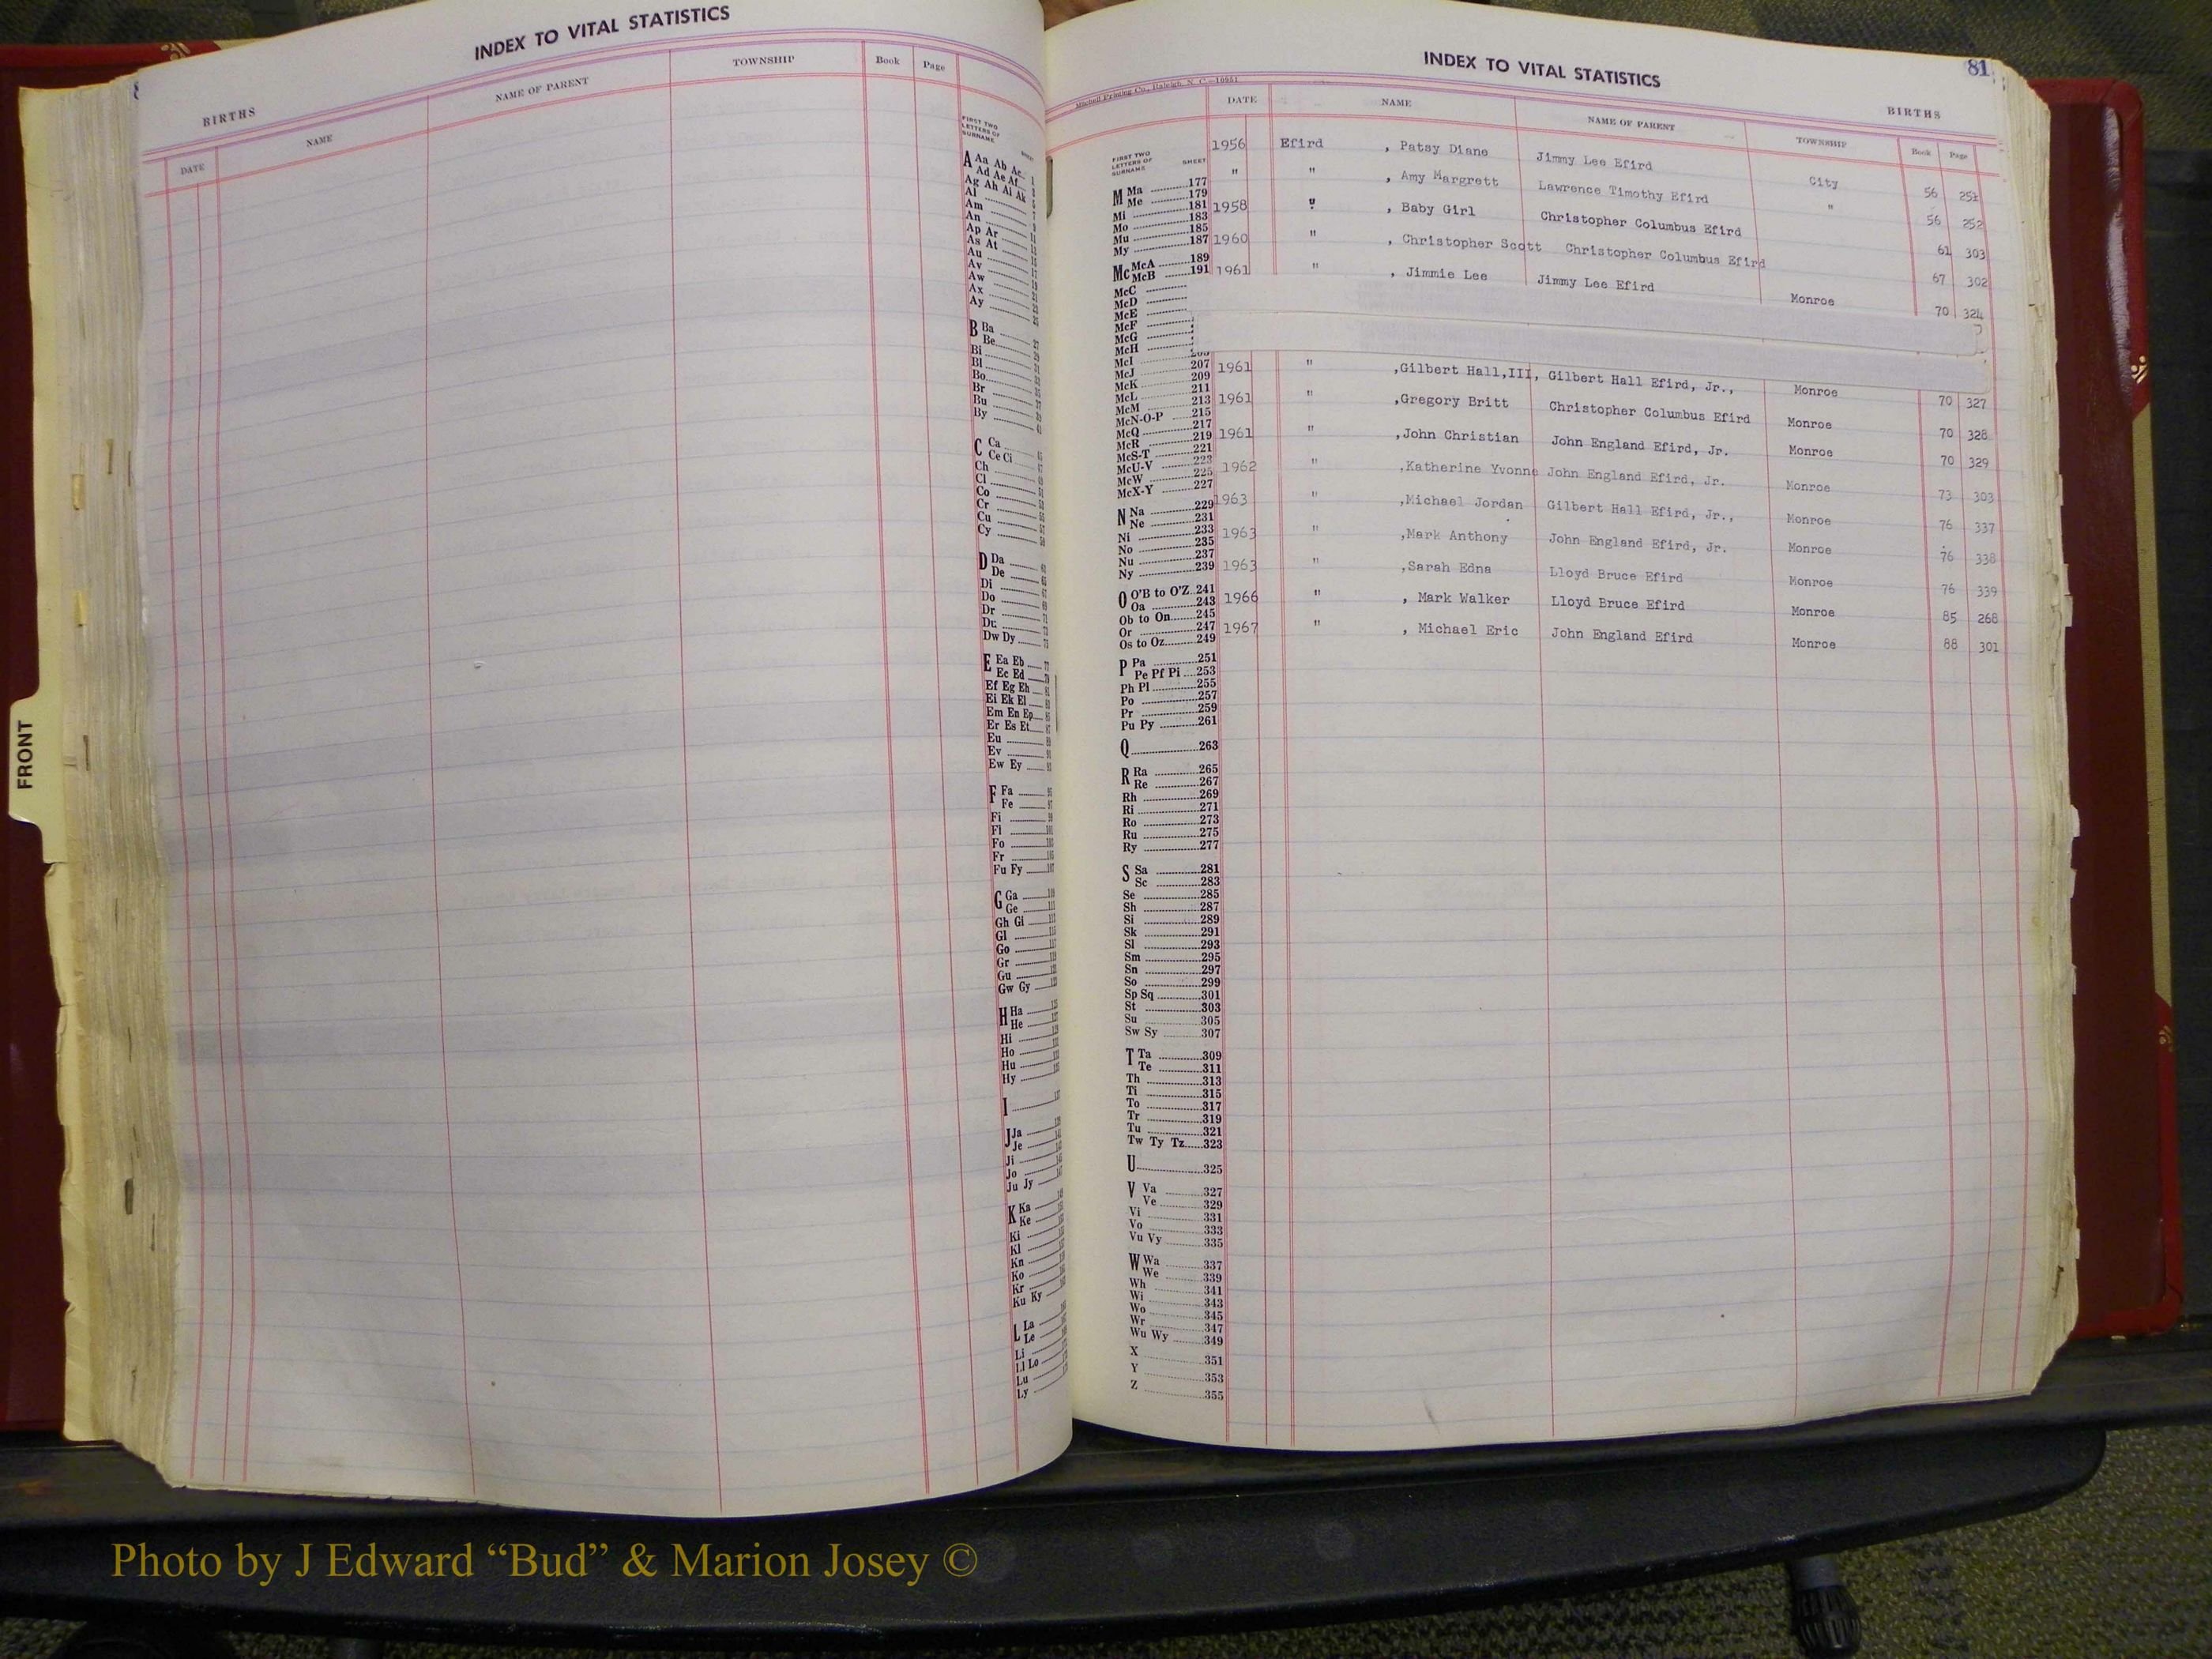 INDEX TO VITAL STATISTICS
BIRTHS
DATE NAME NAME OF PARENT TOWNSHIP Book Page
FIRST TWO
LETTERS OF
SURNAME
A Aa Ab Ac
Ad Ae Af
Ag Ah Ai Ak
Al
Am
An
Ap Ar
As At
Au
Av
Aw
Ax
Ay
B Ba
Be
Bi
Bl
Bo
Br
Bu
By
C Ca
Ce Ci
Ch
Cl
Co
Cr
Cu
Cy
D Da
De
Di
Do
Dr
Du
Dw Dy
E Ea Eb
Ec Ed
Ef Eg Eh
Ei Ek El
Em En Ep
Er Es Et
Eu
Ev
Ew Ey
F Fa
Fe
Fi
Fl
Fo
Fr
Fu Fy
G Ga
Ge
Gh Gi
Gl
Go
Gr
Gu
Gw Gy
H Ha
He
Hi
Ho
Hu
Hy
I
J Ja
Je
Ji
Jo
Ju Jy
K Ka
Ke
Ki
Kl
Kn
Ko
Kr
Ku Ky
L La
Le
Li
Ll Lo
Lu
Ly
FRONT
INDEX TO VITAL STATISTICS 81
Mitchell Printing Co., Raleigh, N. C.
BIRTHS
DATE NAME NAME OF PARENT TOWNSHIP Book Page
FIRST TWO
LETTERS OF
SURNAME SHEET
M Ma 177
Me 179
Mi 181
Mo 183
Mu 185
My 187
Mc McA 189
McB 191
McC
McD
McE
McF
McG
McH
McI
McJ 207
McK 209
McL 211
McM 213
McN-O-P 215
McQ 217
McR 219
McS-T 221
McU-V 223
McW 225
McX-Y 227
N Na 229
Ne 231
Ni 233
No 235
Nu 237
Ny 239
O O'B to O'Z 241
Oa 243
Ob to On 245
Or 247
Os to Oz 249
P Pa 251
Pe Pf Pi 253
Ph Pl 255
Po 257
Pr 259
Pu Py 261
Q 263
R Ra 265
Re 267
Rh 269
Ri 271
Ro 273
Ru 275
Ry 277
S Sa 281
Sc 283
Se 285
Sh 287
Si 289
Sk 291
Sl 293
Sm 295
Sn 297
So 299
Sp Sq 301
St 303
Su 305
Sw Sy 307
T Ta 309
Te 311
Th 313
Ti 315
To 317
Tr 319
Tu 321
Tw Ty Tz 323
U 325
V Va 327
Ve 329
Vi 331
Vo 333
Vu Vy 335
W Wa 337
We 339
Wh 341
Wi 343
Wo 345
Wr 347
Wu Wy 349
X 351
Y 353
Z 355
1956 Efird , Patsy Diane Jimmy Lee Efird City 56 251
" " , Amy Margrett Lawrence Timothy Efird " 56 252
1958 " , Baby Girl Christopher Columbus Efird 61 303
1960 " , Christopher Scott Christopher Columbus Efird 67 302
1961 " , Jimmie Lee Jimmy Lee Efird Monroe 70 324
1961 " ,Gilbert Hall,III, Gilbert Hall Efird, Jr., Monroe 70 327
1961 " ,Gregory Britt Christopher Columbus Efird Monroe 70 328
1961 " ,John Christian John England Efird, Jr. Monroe 70 329
1962 " ,Katherine Yvonne John England Efird, Jr. Monroe 73 303
1963 " ,Michael Jordan Gilbert Hall Efird, Jr., Monroe 76 337
1963 " ,Mark Anthony John England Efird, Jr. Monroe 76 338
1963 " ,Sarah Edna Lloyd Bruce Efird Monroe 76 339
1966 " , Mark Walker Lloyd Bruce Efird Monroe 85 268
1967 " , Michael Eric John England Efird Monroe 88 301
Photo by J Edward “Bud” & Marion Josey ©